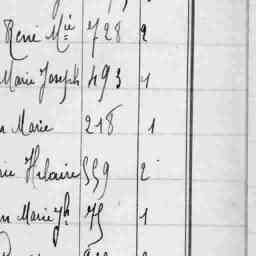 René Mie 728 2
Marie Joseph 493 1
n Marie 218 1
rie Hilaire 559 2
n Marie Jh 75 1